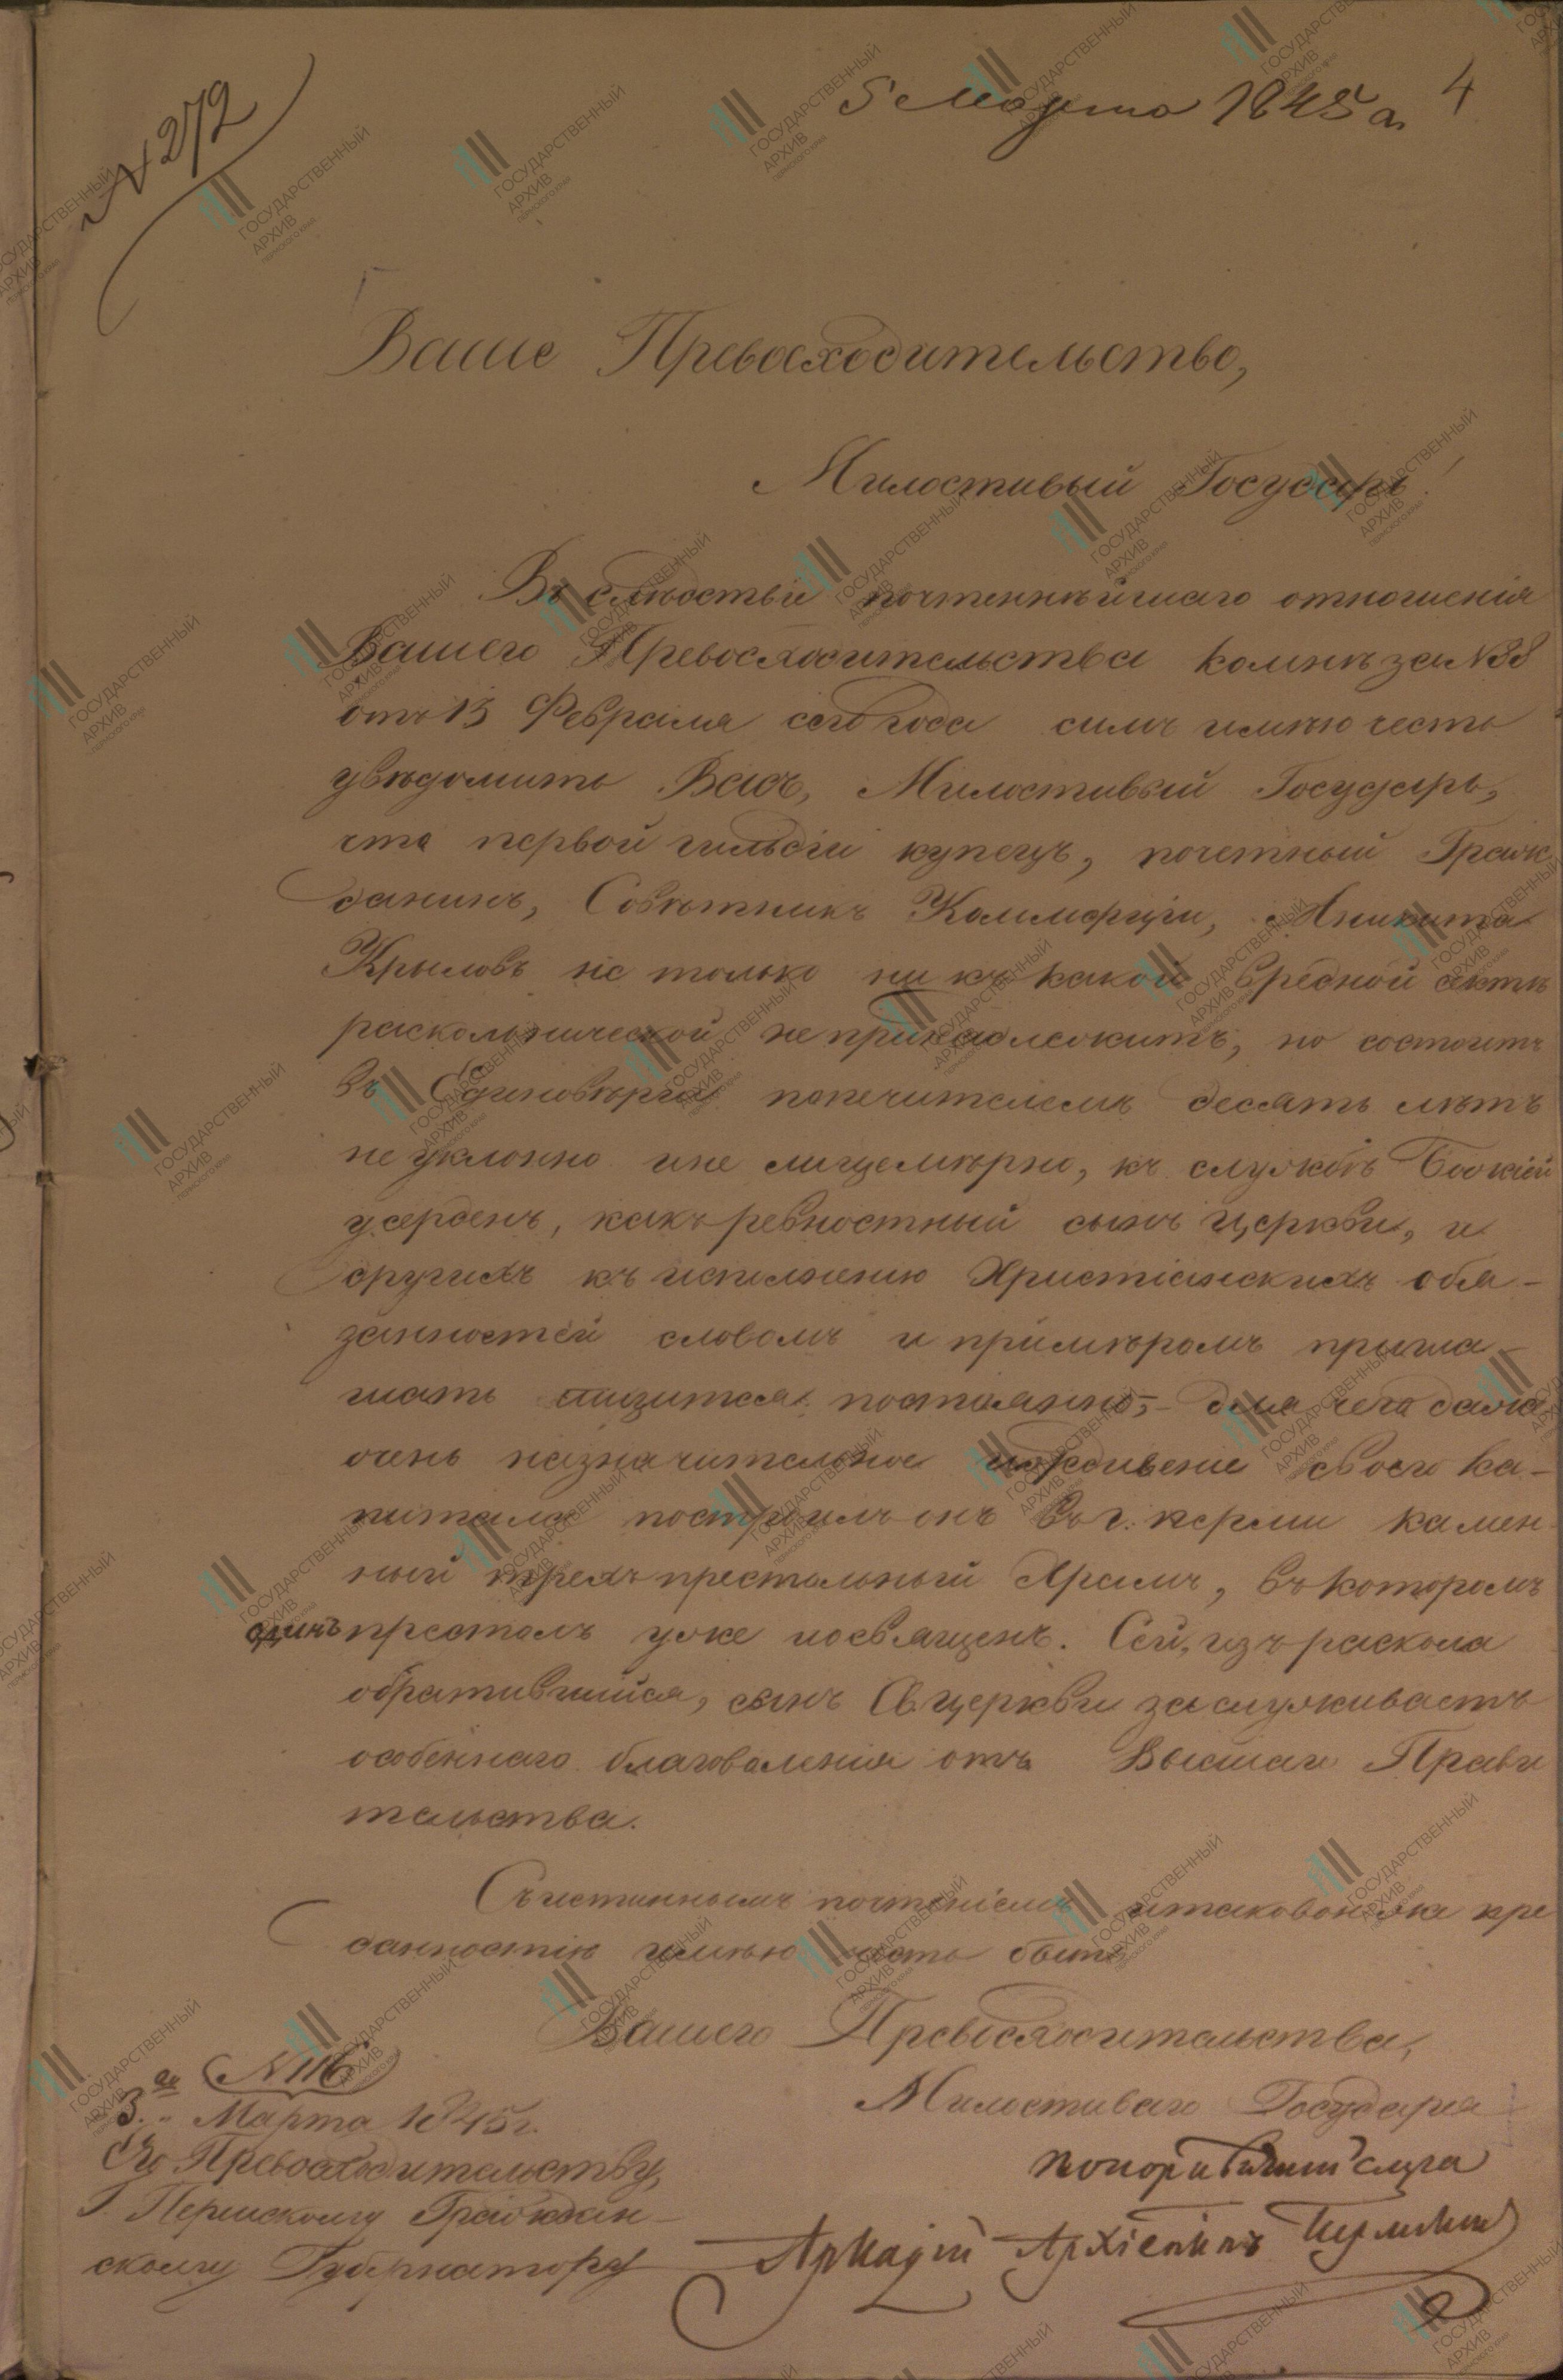 N 272
5 Марта 1845 г.
4
Ваше Превосходительство,
Милостивый Государь!
Въ слѣдствіе почтеннѣйшаго отношенія
Вашего Превосходительства ко мнѣ за №38
отъ 13 Февраля сего года симъ имѣю честь
увѣдомить Васъ, Милостивый Государь,
что первой гильдіи купецъ, почетный Граж
данинъ, Совѣтникъ Коммерціи, Аникита
Крыловъ не только ни къ какой вредной сектѣ
раскольнической не принадлежитъ, но состоитъ
въ Единовѣріи попечителемъ десять лѣтъ
не уклонно и не лицемѣрно, къ службѣ Божіей
усерденъ, какъ ревностный сынъ церкви, и
другихъ къ исполненію Христіанскихъ обя-
занностей словомъ и примѣромъ пригла-
шать тщится постоянно; - для чего даже
очень незначительное иждивеніе своего ка-
питала построилъ онъ въ г. перми камен
ный трехъ престольный Храмъ, въ которомъ
одинъ престолъ уже посвященъ. Сей, изъ раскола
обратившійся, сынъ Св церкви заслуживаетъ
особеннаго благоволенія отъ Высшаго Прави
тельства.
Съ истиннымъ почтеніемъ и таковою же пре
данностію имѣю честь быть
Вашего Превосходительства,
Милостиваго Государя
покорнѣйшій слуга
Аркадій Архіепкпъ Пермскій
N 116
3.го Марта 1845 г.
Его Превосходительству,
Г. Пермскому Граждан-
скому Губернатору
ГОСУДАРСТВЕННЫЙ
АРХИВ
ПЕРМСКОГО КРАЯ